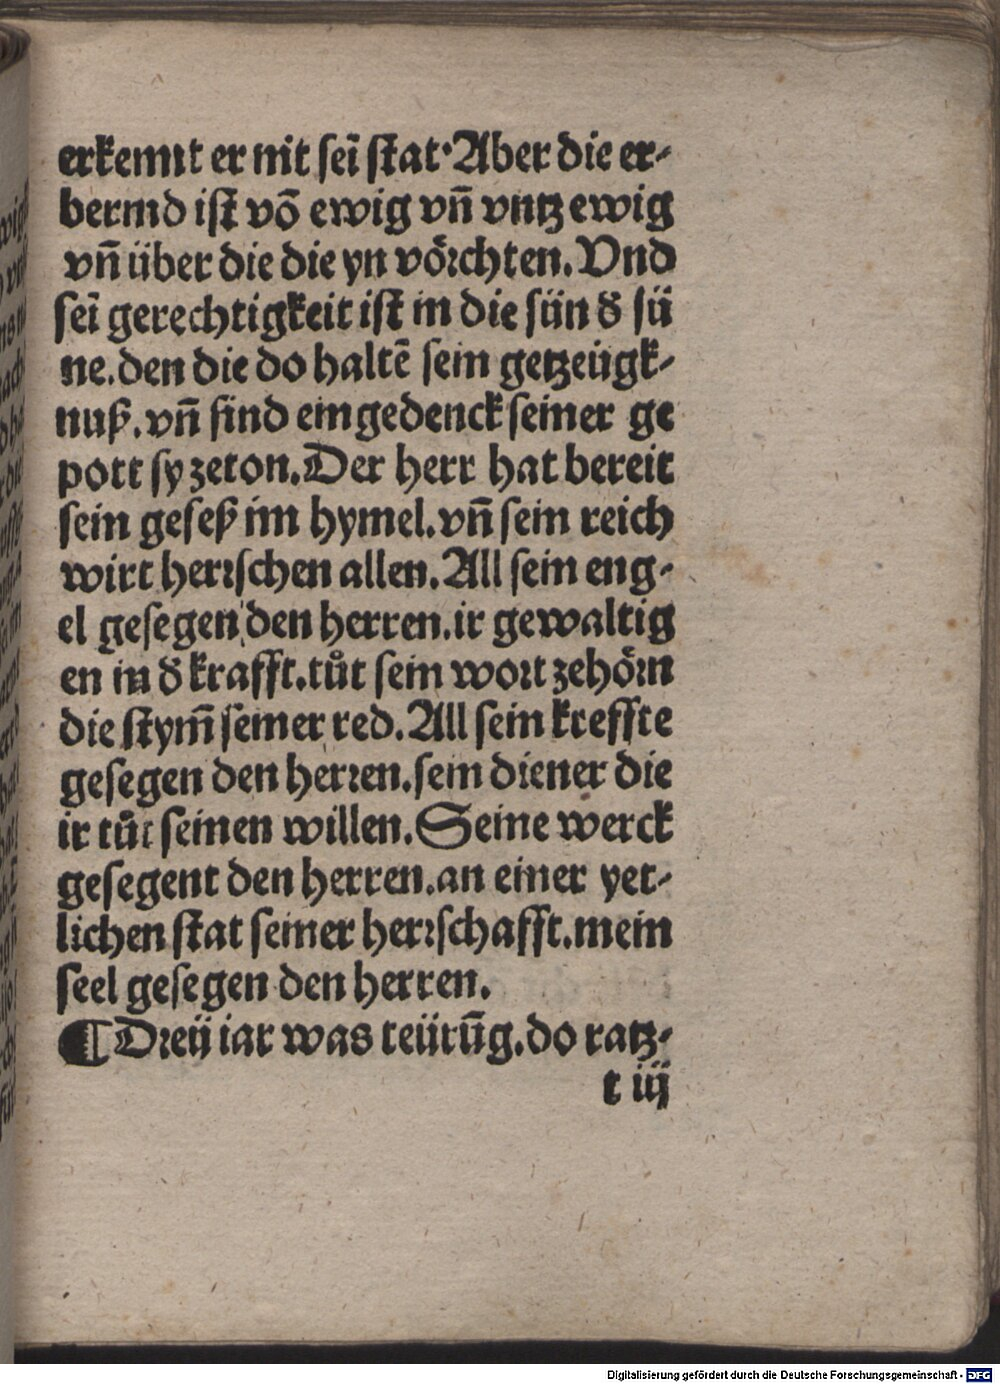 erkennt er nit seī stat·Aber die er⸗
bermd ist vō ewig vn̄ vntz ewig
vn̄ über die die yn vörchten.Vnd
seī gerechtigkeit ist in die sün d̕ sü
ne.den die do haltē sein getzeügk⸗
nuß.vn̄ sind eingedenck seiner ge
pott sy zeton.Der herr hat bereit
sein geseß im hymel.vn̄ sein reich
wirt herrschen allen.All sein eng⸗
el gesegen den herren.ir gewaltig
en in d̕ krafft.tůt sein wort zehörn
die stym̄ seiner red.All sein kreffte
gesegen den herren.sein diener die
ir tůt seinen willen.Seine werck
gesegent den herren.an einer yet⸗
lichen stat seiner herrschafft.mein
seel gesegen den herren.
¶Dreij iar was teürūg.do ratz⸗
t iij
Digitalisierung gefördert durch die Deutsche Forschungsgemeinschaft - DFG